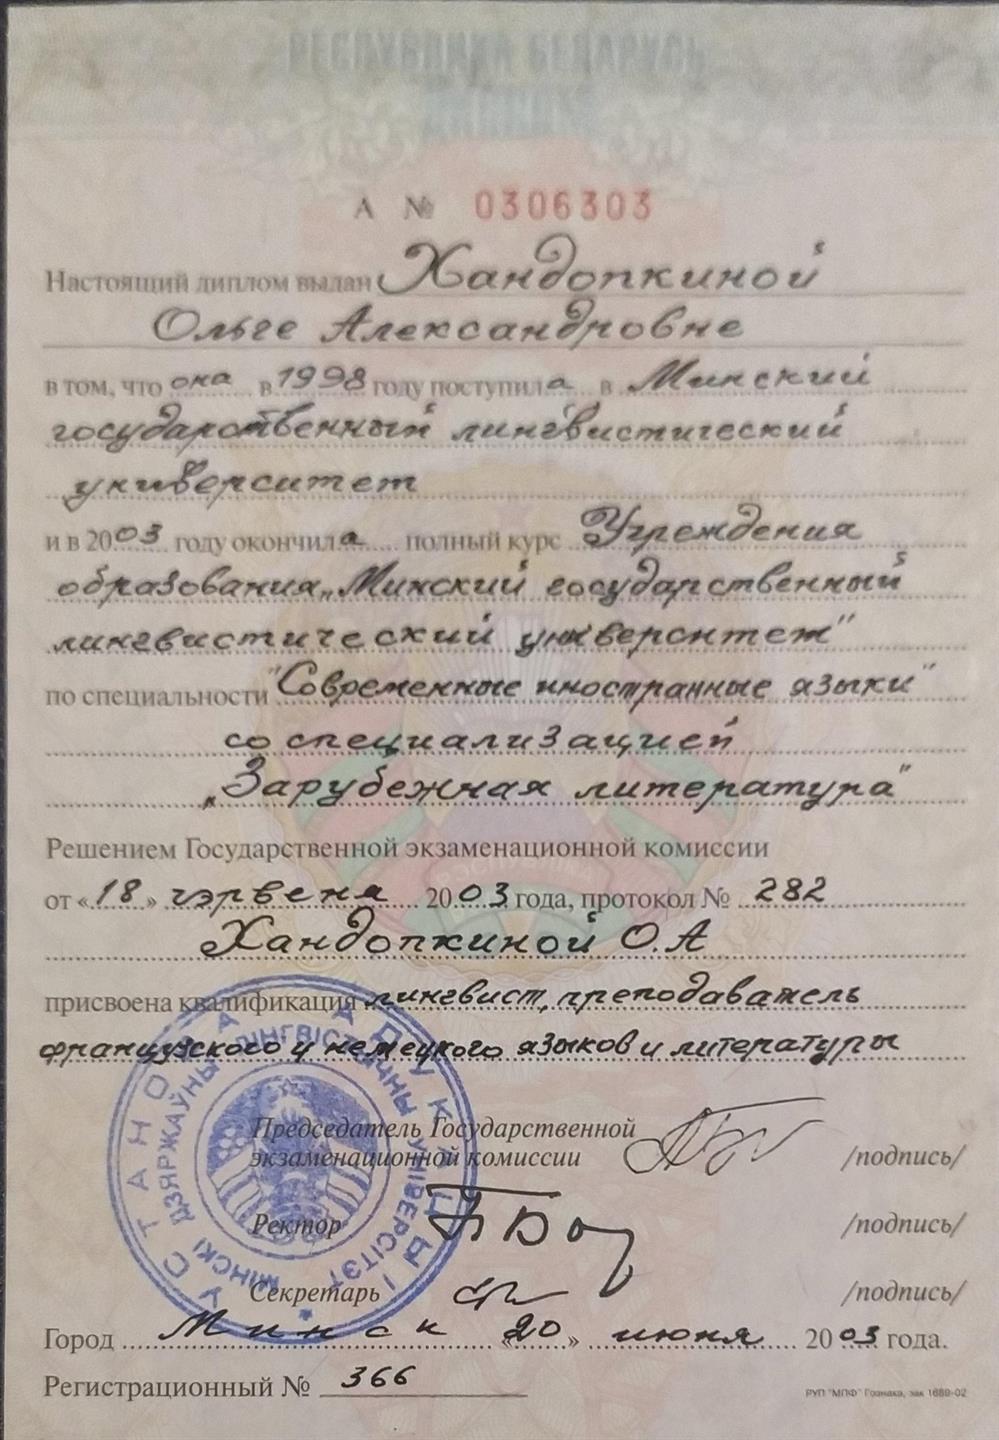 РЕСПУБЛИКА БЕЛАРУСЬ
ДИПЛОМ
А № 0306303
Настоящий диплом выдан Хандопкиной
Ольге Александровне
в том, что она в 1998 году поступила в Минский
государственный лингвистический
университет
и в 2003 году окончила полный курс Учреждения
образования „Минский государственный
лингвистический университет"
по специальности "Современные иностранные языки"
со специализацией
„Зарубежная литература"
Решением Государственной экзаменационной комиссии
от «18» чэрвеня 2003 года, протокол № 282
Хандопкиной О.А
присвоена квалификация лингвист, преподаватель
французского и немецкого языков и литературы
Председатель Государственной
экзаменационной комиссии /подпись/
Ректор /подпись/
Секретарь /подпись/
Город Минск «20» июня 2003 года.
Регистрационный № 366
РУП "МПФ" Гознака, зак 1689-02
УСТАНОВА АДУКАЦЫІ
МІНСКІ ДЗЯРЖАЎНЫ ЛІНГВІСТЫЧНЫ УНІВЕРСІТЭТ